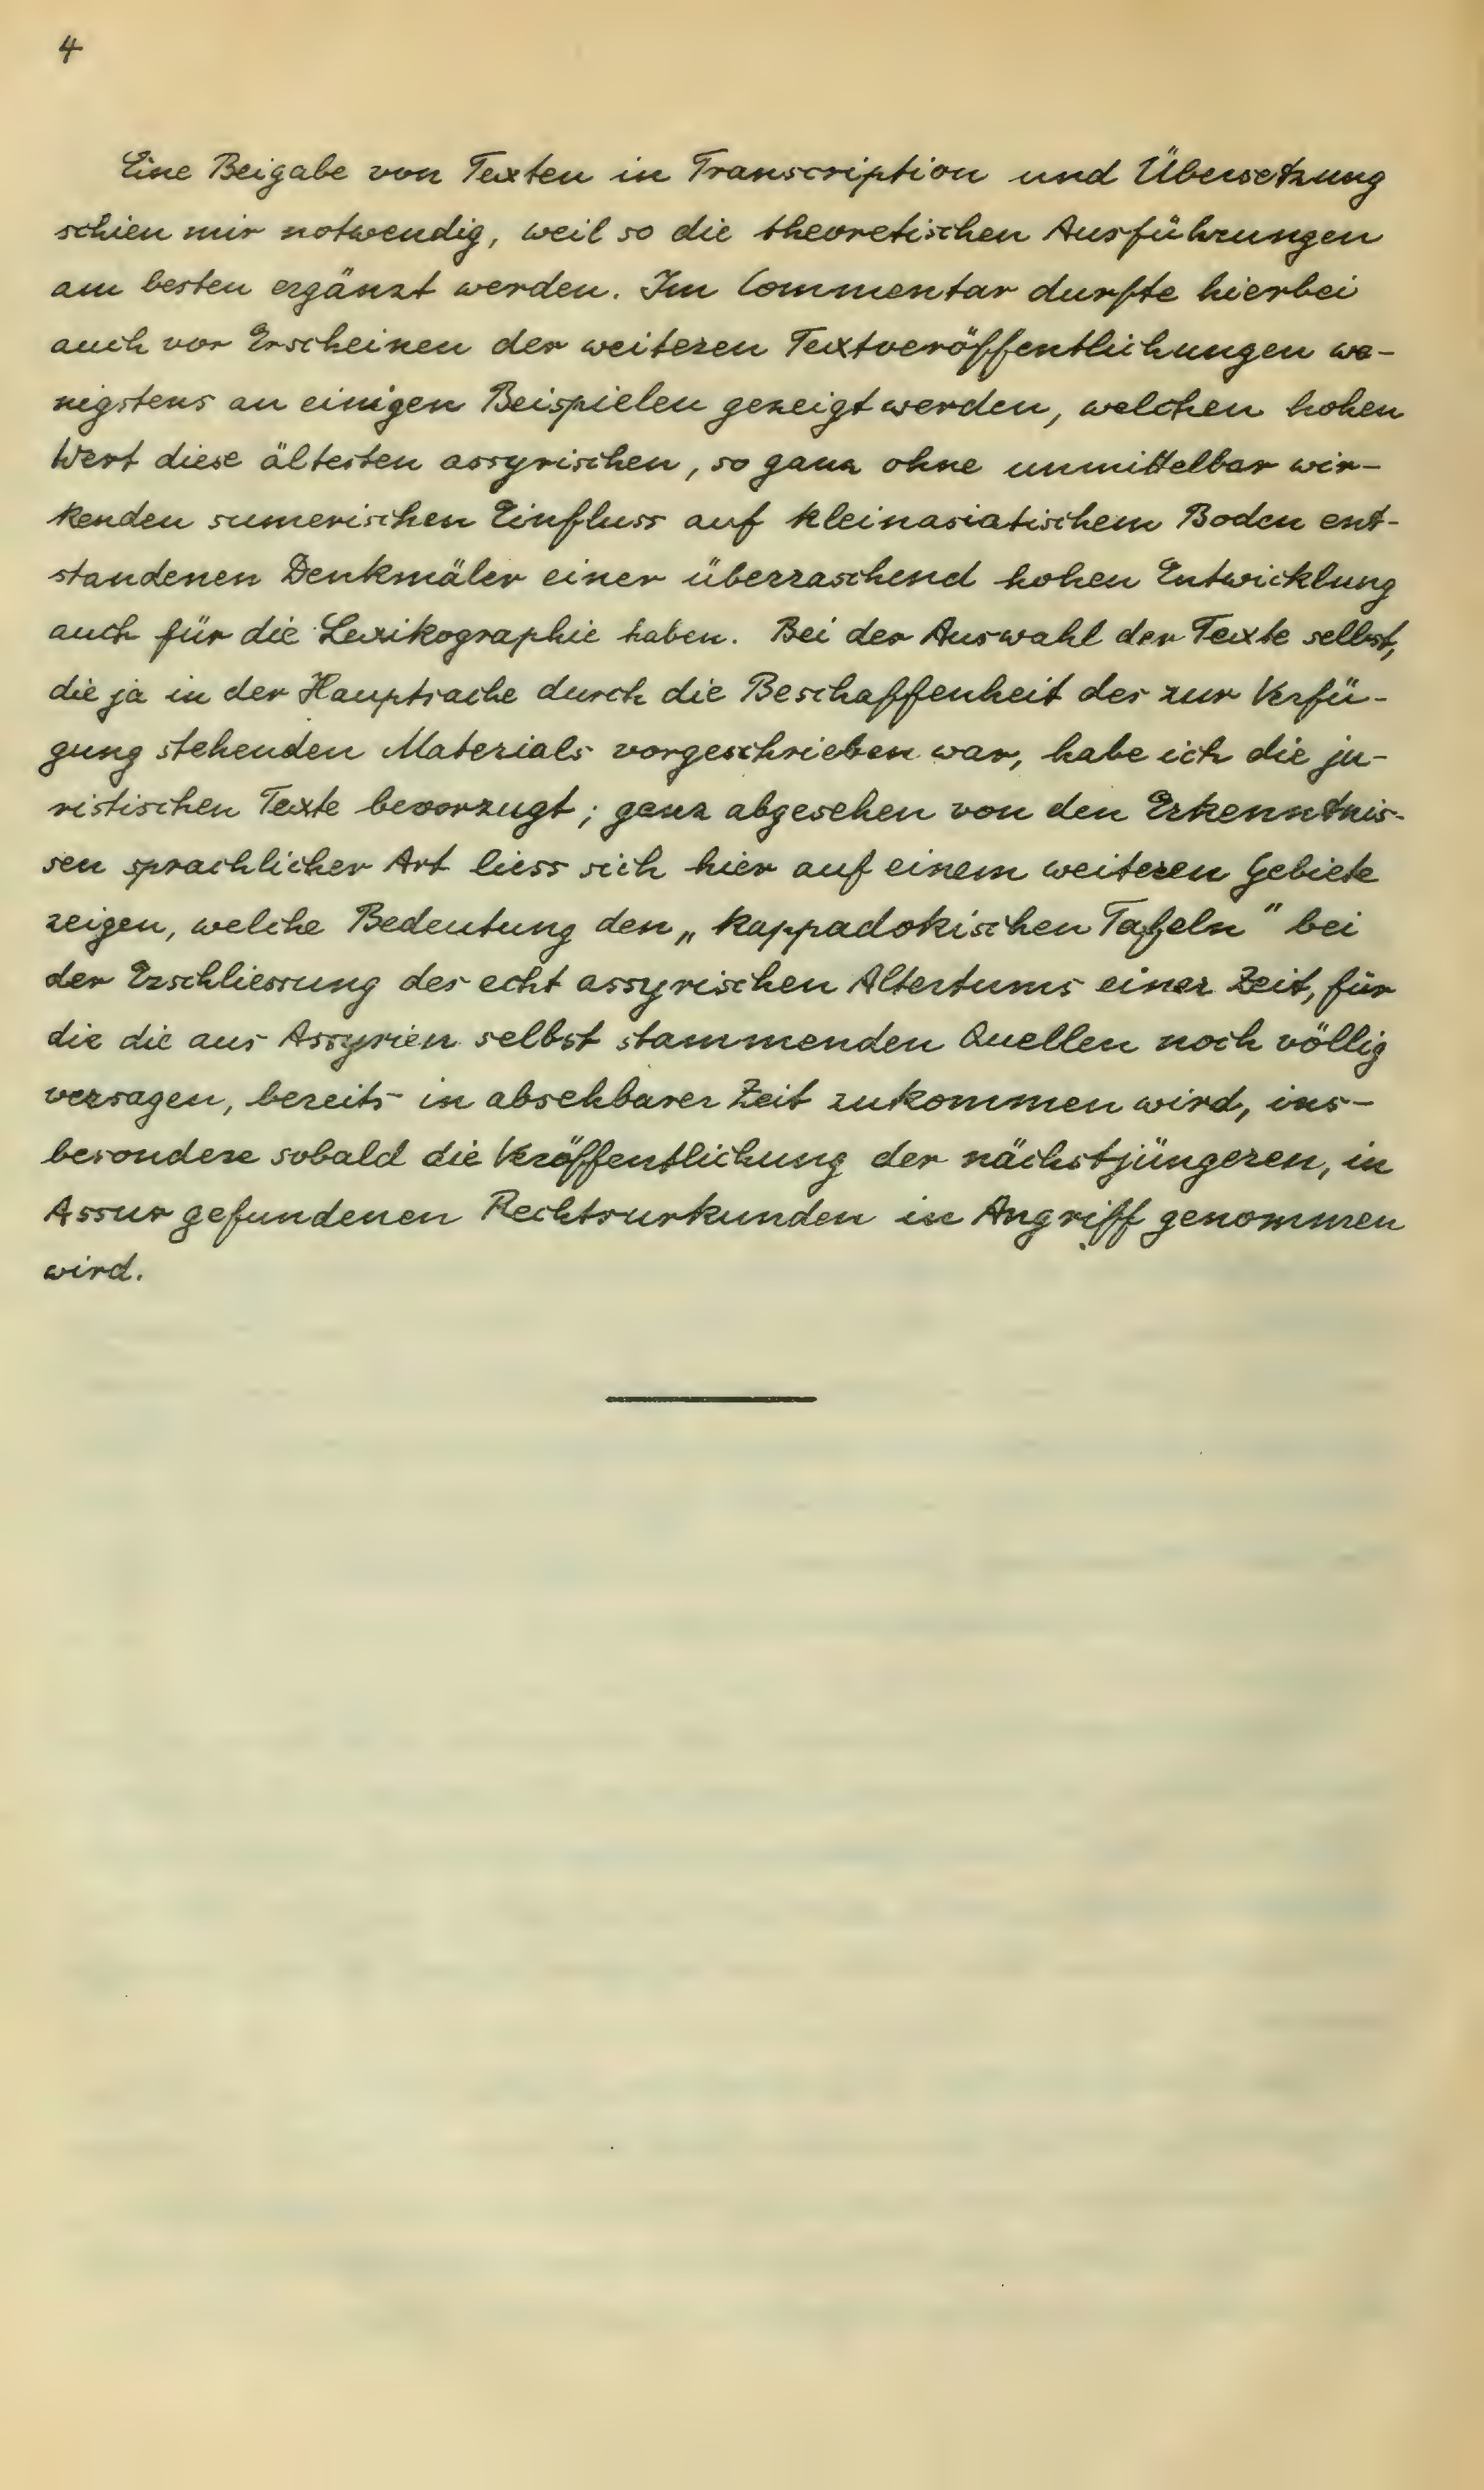 4
Eine Beigabe von Texten in Transcription und Übersetzung
schien mir notwendig, weil so die theoretischen Ausführungen
am besten ergänzt werden. Im Commentar durfte hierbei
auch vor Erscheinen der weiteren Textveröffentlichungen we-
nigstens an einigen Beispielen gezeigt werden, welchen hohen
Wert diese ältesten assyrischen, so ganz ohne unmittelbar wir-
kenden sumerischen Einfluss auf kleinasiatischem Boden ent-
standenen Denkmäler einer überraschend hohen Entwicklung
auch für die Lexikographie haben. Bei der Auswahl der Texte selbst,
die ja in der Hauptsache durch die Beschaffenheit des zur Verfü-
gung stehenden Materials vorgeschrieben war, habe ich die ju-
ristischen Texte bevorzugt; ganz abgesehen von den Erkenntnis-
sen sprachlicher Art liess sich hier auf einem weiteren Gebiete
zeigen, welche Bedeutung den „kappadokischen Tafeln" bei
der Erschliessung des echt assyrischen Altertums einer Zeit, für
die die aus Assyrien selbst stammenden Quellen noch völlig
versagen, bereits in absehbarer Zeit zukommen wird, ins-
besondere sobald die Veröffentlichung der nächstjüngeren, in
Assur gefundenen Rechtsurkunden in Angriff genommen
wird.